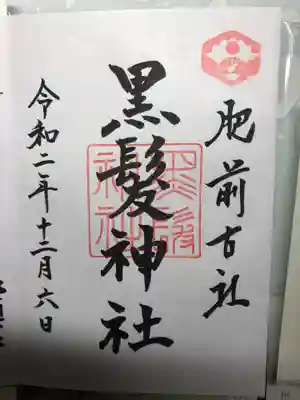 肥前古社
黒髪神社
令和二年十二月六日